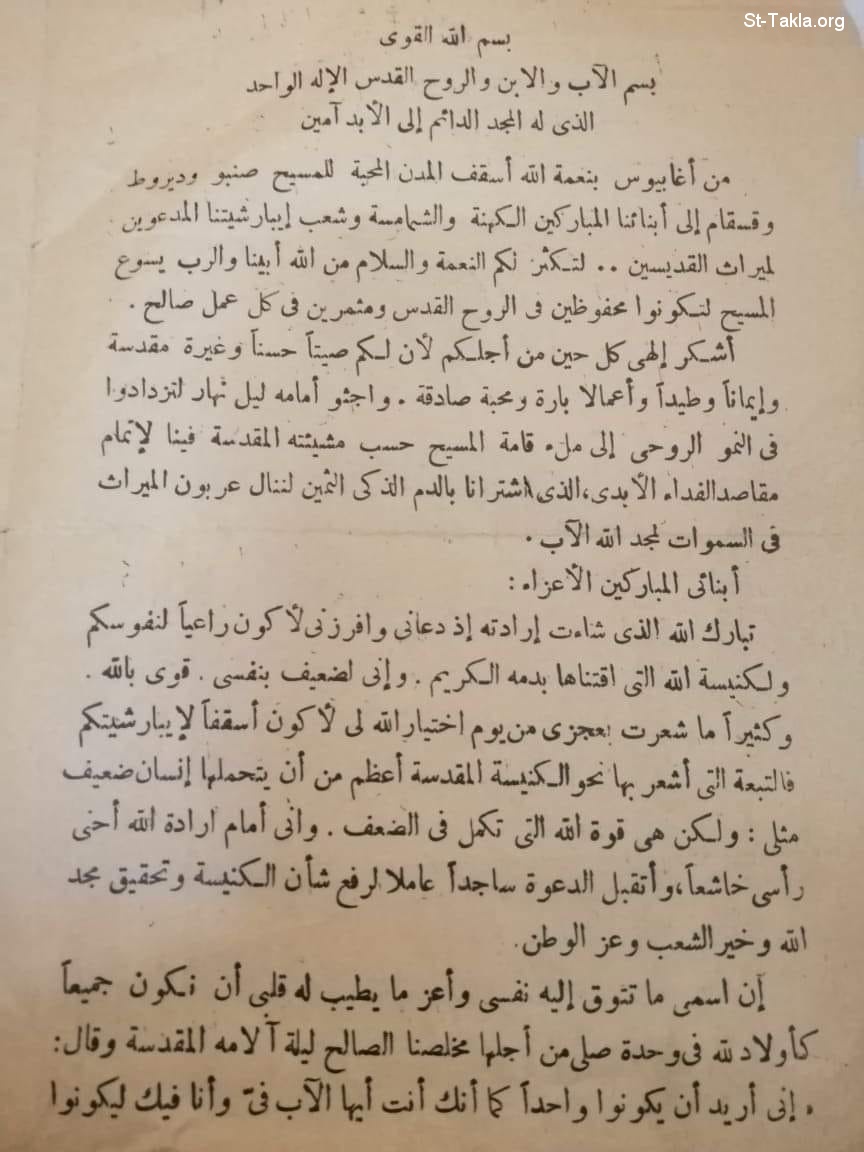 St-Takla.org
بسم الله القوى
بسم الآب والابن والروح القدس الإله الواحد
الذى له المجد الدائم إلى الأبد آمين
من أغابيوس بنعمة الله أسقف المدن المحبة للمسيح صنبو وديروط
وقسقام إلى أبنائنا المباركين الكهنة والشمامسة وشعب إيبارشيتنا المدعوين
لميراث القديسين .. لتكثر لكم النعمة والسلام من الله أبينا والرب يسوع
المسيح لتكونوا محفوظين فى الروح القدس ومثمرين فى كل عمل صالح .
أشكر إلهى كل حين من أجلكم لأن لكم صيتاً حسناً وغيرة مقدسة
وإيماناً وطيداً وأعمالا بارة ومحبة صادقة . واجثو أمامه ليل نهار لتزدادوا
فى النمو الروحى إلى ملء قامة المسيح حسب مشيئته المقدسة فينا لإتمام
مقاصد الفداء الأبدى، الذى اشترانا بالدم الذكى الثمين لننال عربون الميراث
فى السموات لمجد الله الآب .
أبنائى المباركين الأعزاء :
تبارك الله الذى شاءت إرادته إذ دعانى وافرزنى لأكون راعياً لنفوسكم
ولكنيسة الله التى اقتناها بدمه الكريم . وإنى لضعيف بنفسى . قوى بالله .
وكثيراً ما شعرت بعجزى من يوم اختيار الله لى لأكون أسقفاً لإيبارشيتكم
فالتبعة التى أشعر بها نحو الكنيسة المقدسة أعظم من أن يتحملها إنسان ضعيف
مثلى : ولكن هى قوة الله التى تكمل فى الضعف . وانى أمام ارادة الله أحنى
رأسى خاشعاً، وأتقبل الدعوة ساجداً عاملا لرفع شأن الكنيسة وتحقيق مجد
الله وخير الشعب وعز الوطن.
إن اسمى ما تتوق إليه نفسى وأعز ما يطيب له قلبى أن نكون جميعاً
كأولاد لله فى وحدة صلى من أجلها مخلصنا الصالح ليلة آلامه المقدسة وقال:
« إنى أريد أن يكونوا واحداً كما أنك أنت أيها الآب فىّ وأنا فيك ليكونوا